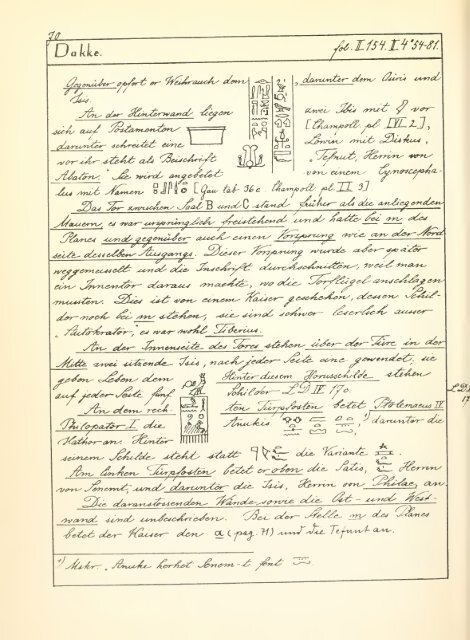 70
Dakke.
fol. II. 154. II. 4° 54-81.
Gegenüber opfert er Weihrauch dem , darunter dem Osiris und
Isis
An der Hinterwand liegen zwei Ibis mit vor
sich auf Postamenten [Champoll. pl. VI 2],
darunter schreitet eine Löwin mit Diskus,
vor ihr steht als Beischrift „Tefnut, Herrin von
Abaton." Sie wird angebetet von einem Cynoscepha-
lus mit Namen [Gau tab. 36 c Champoll pl II 3]
Das Tor zwischen Saal B und C stand früher als die anliegenden
Mauern, es war ursprünglich freistehend und hatte bei m des
Planes und gegenüber auch einen Vorsprung wie an der Nord
seite desselben Ausgangs. Dieser Vorsprung wurde aber später
weggemeisselt und die Inschrift durchschnitten, weil man
ein Innentor daraus machte, wo die Torflügel anschlagen
mussten. Dies ist von einem Kaiser geschehen, dessen Schil-
der noch bei m stehen, sie sind schwer leserlich ausser
„Autokrator", es war wohl Tiberius.
An der Innenseite des Tores stehen über der Türe in der
Mitte zwei sitzende Isis, nach jeder Seite eine gewendet, sie
geben Leben dem Hinter diesem Horusschilde stehen
auf jeder Seite fünf Schilder LD IV 17c. LD
17
An dem rech- ten Türpfosten betet Ptolemaeus IV
Philopator I die Anukis ,¹) darunter die
Hathor an. Hinter
seinem Schilde steht statt die Variante
Am linken Türpfosten betet er oben die Satis, Herrin
von Senemt, und darunter die Isis, Herrin von Philae, an.
Die daranstossenden Wände, sowie die Ost- und West-
wand sind unbeschrieben. Bei der Stelle m des Planes
betet der Kaiser den a (pag. H) und die Tefnut an.
¹) Mskr. „Anuke herhot Senom-t font